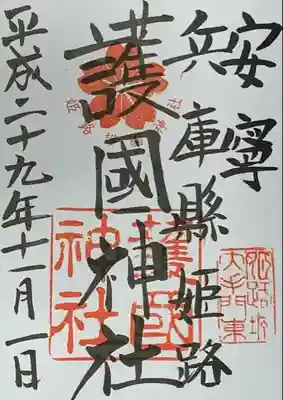 安寧
兵庫縣姫路
護國神社
平成二十九年十一月一日
護國
神社
大手門東